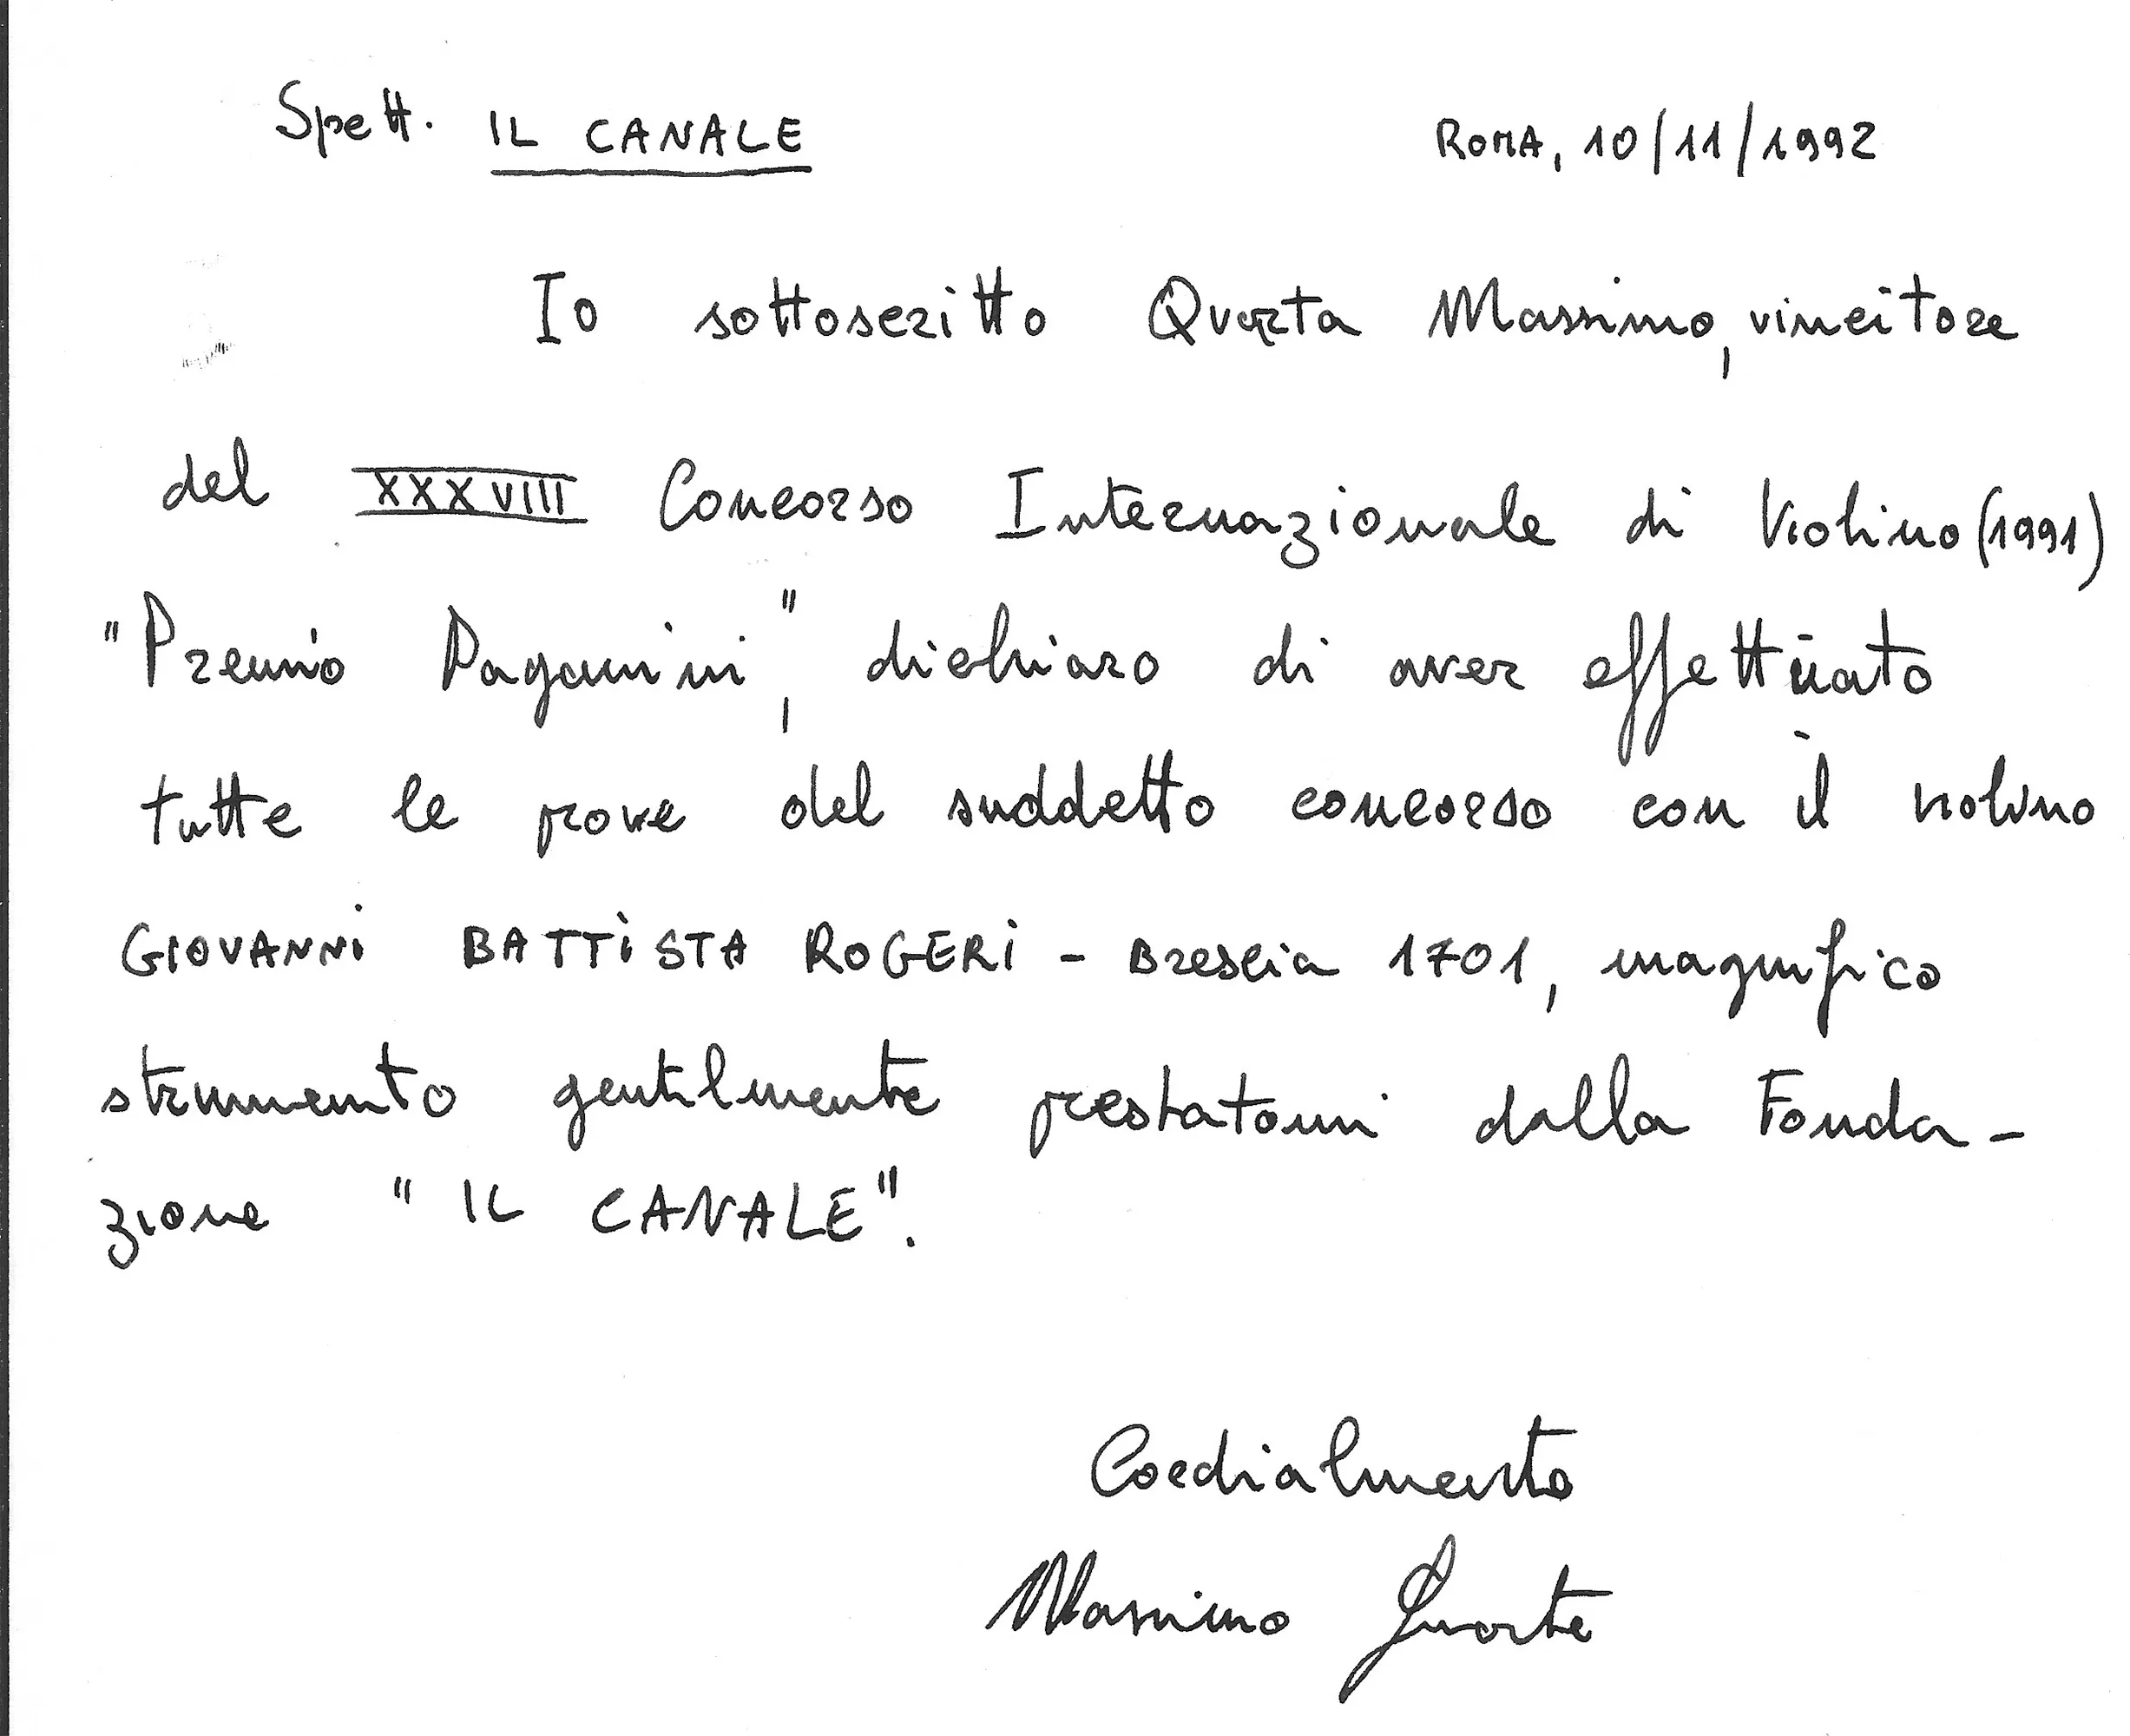 Spett. IL CANALE ROMA, 10/11/1992
Io sottoscritto Quarta Massimo, vincitore
del XXXVIII Concorso Internazionale di Violino (1991)
"Premio Paganini", dichiaro di aver effettuato
tutte le prove del suddetto concorso con il violino
GIOVANNI BATTISTA ROGERI - Brescia 1701, magnifico
strumento gentilmente prestatomi dalla Fonda-
zione "IL CANALE".
Cordialmente
Massimo Quarta